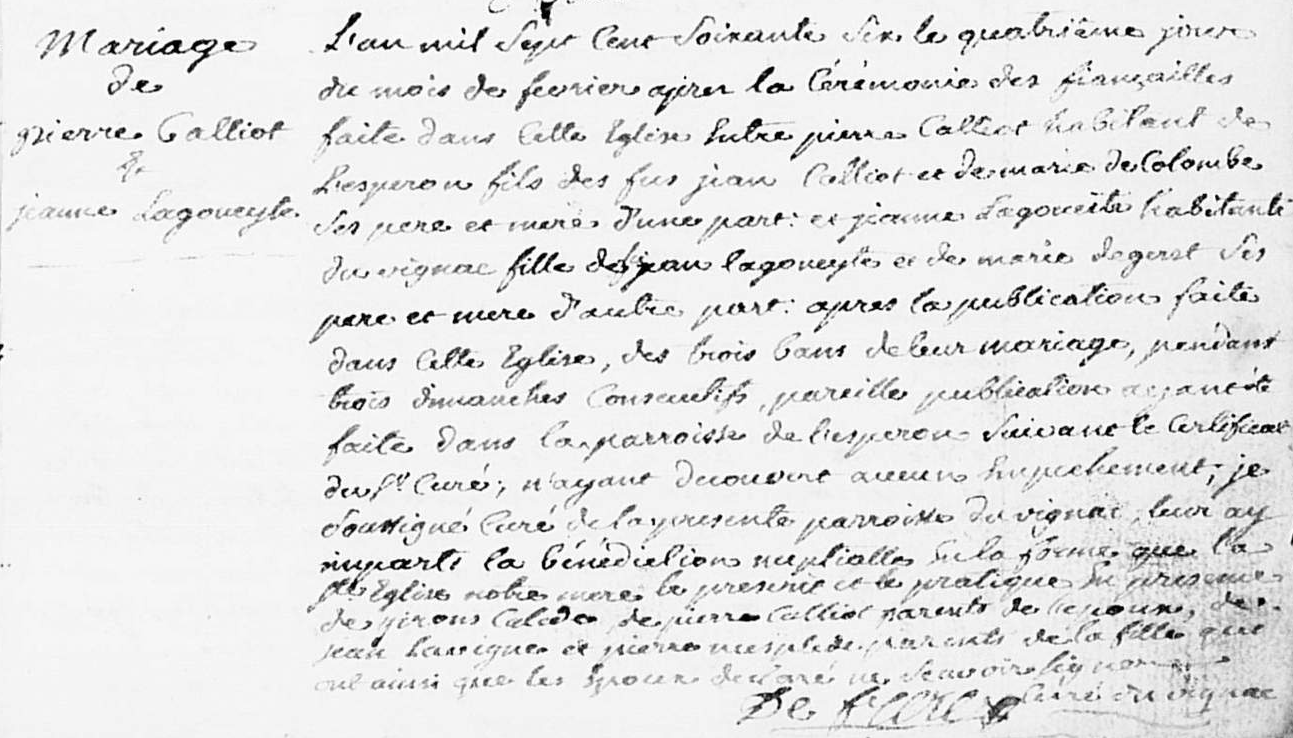 Mariage
de
pierre Calliot
&
jeanne Lagoueyte
L'an mil sept cent soixante six le quatrième jour
du mois de fevrier apres la Cérémonie des fiançailles
faite dans cette Eglise Entre pierre Calliot habitant de
L'esperon fils des fus jean Calliot et de marie de Colombe
ses pere et mere d'une part: et jeanne Lagoueite habitante
du vignac fille de jean lagoueyte et de marie degert ses
pere et mere d'autre part: apres la publication faite
dans cette Eglise, des trois bans de leur mariage, pendant
trois dimanches Consecutifs, pareille publication ayant été
faite dans la parroisse de l'esperon suivant le Certificat
du Sr Curé; n'ayant decouvert aucun Empechement; je
soussigné Curé de la presente parroisse du vignac, leur ay
imparti la bénédiction nuptialle En la forme que la
Ste Eglise notre mere le prescrit et le pratique En presence
de pierre Calliot parents de l'epoux, de
jean et pierre mesplede parents de la fille qui
ont ainsi que les Epoux declaré ne Scavoir signer
Curé du vignac